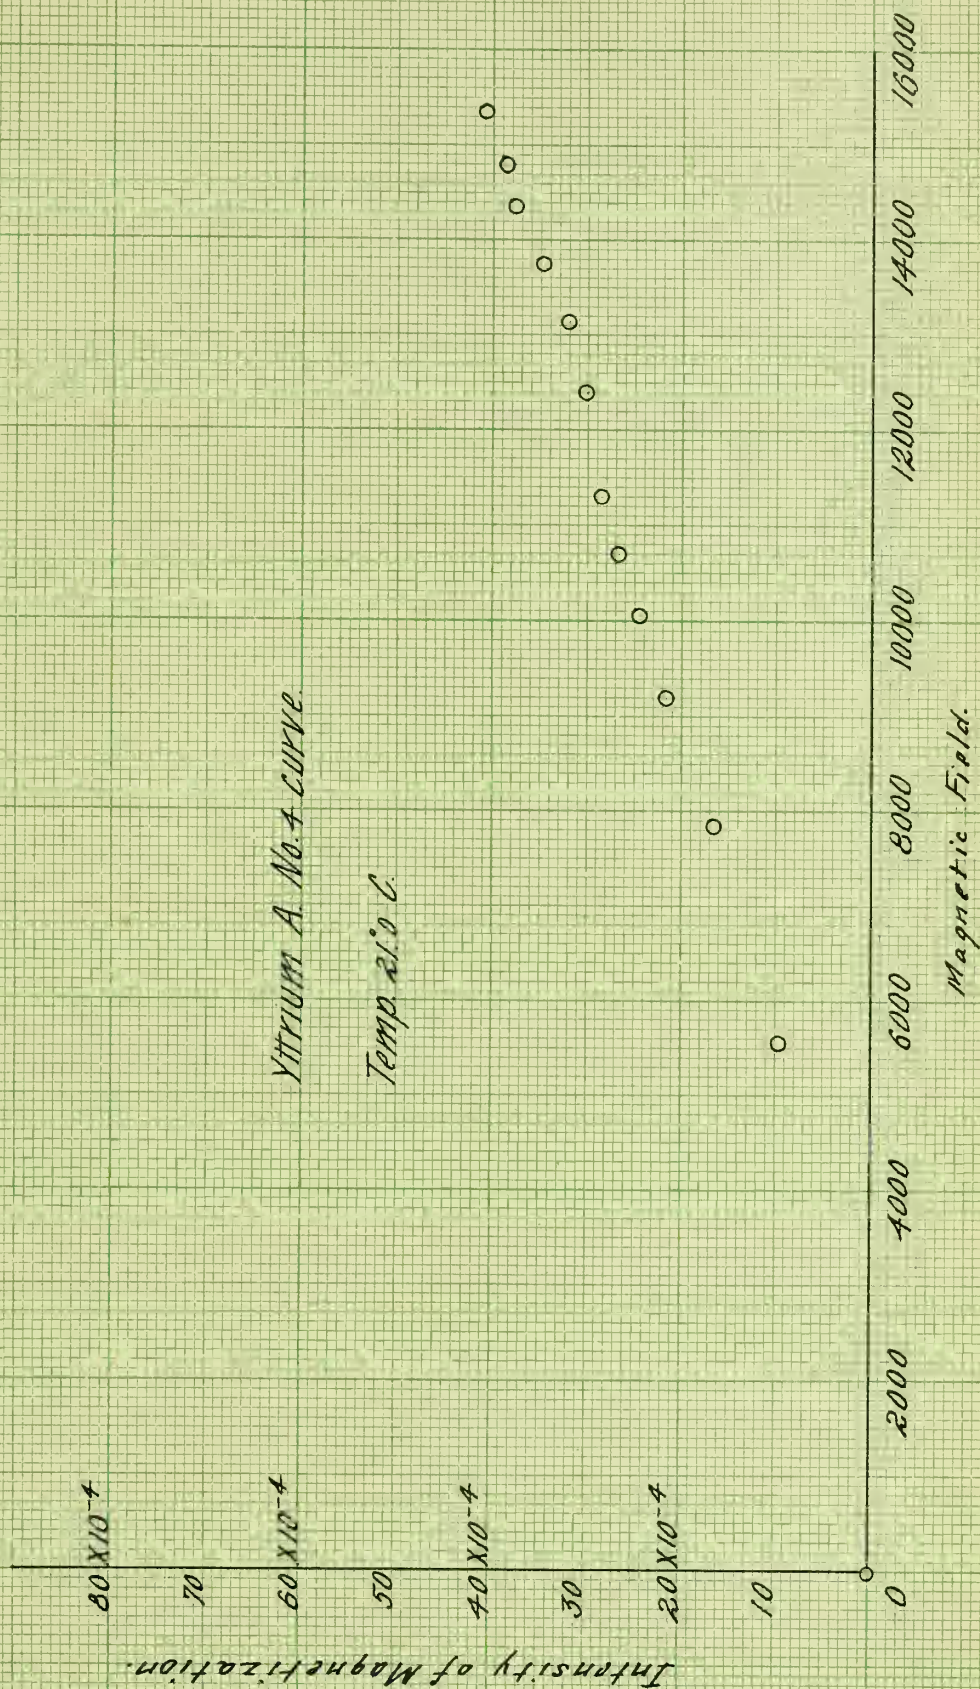 Yttrium A. No. 4 curve.
Temp. 21.°0 C.
Intensity of Magnetization.
80 X10-4
70
60 X10-4
50
40 X10-4
30
20 X10-4
10
0
2000
4000
6000
8000
10000
12000
14000
16000
Magnetic Field.